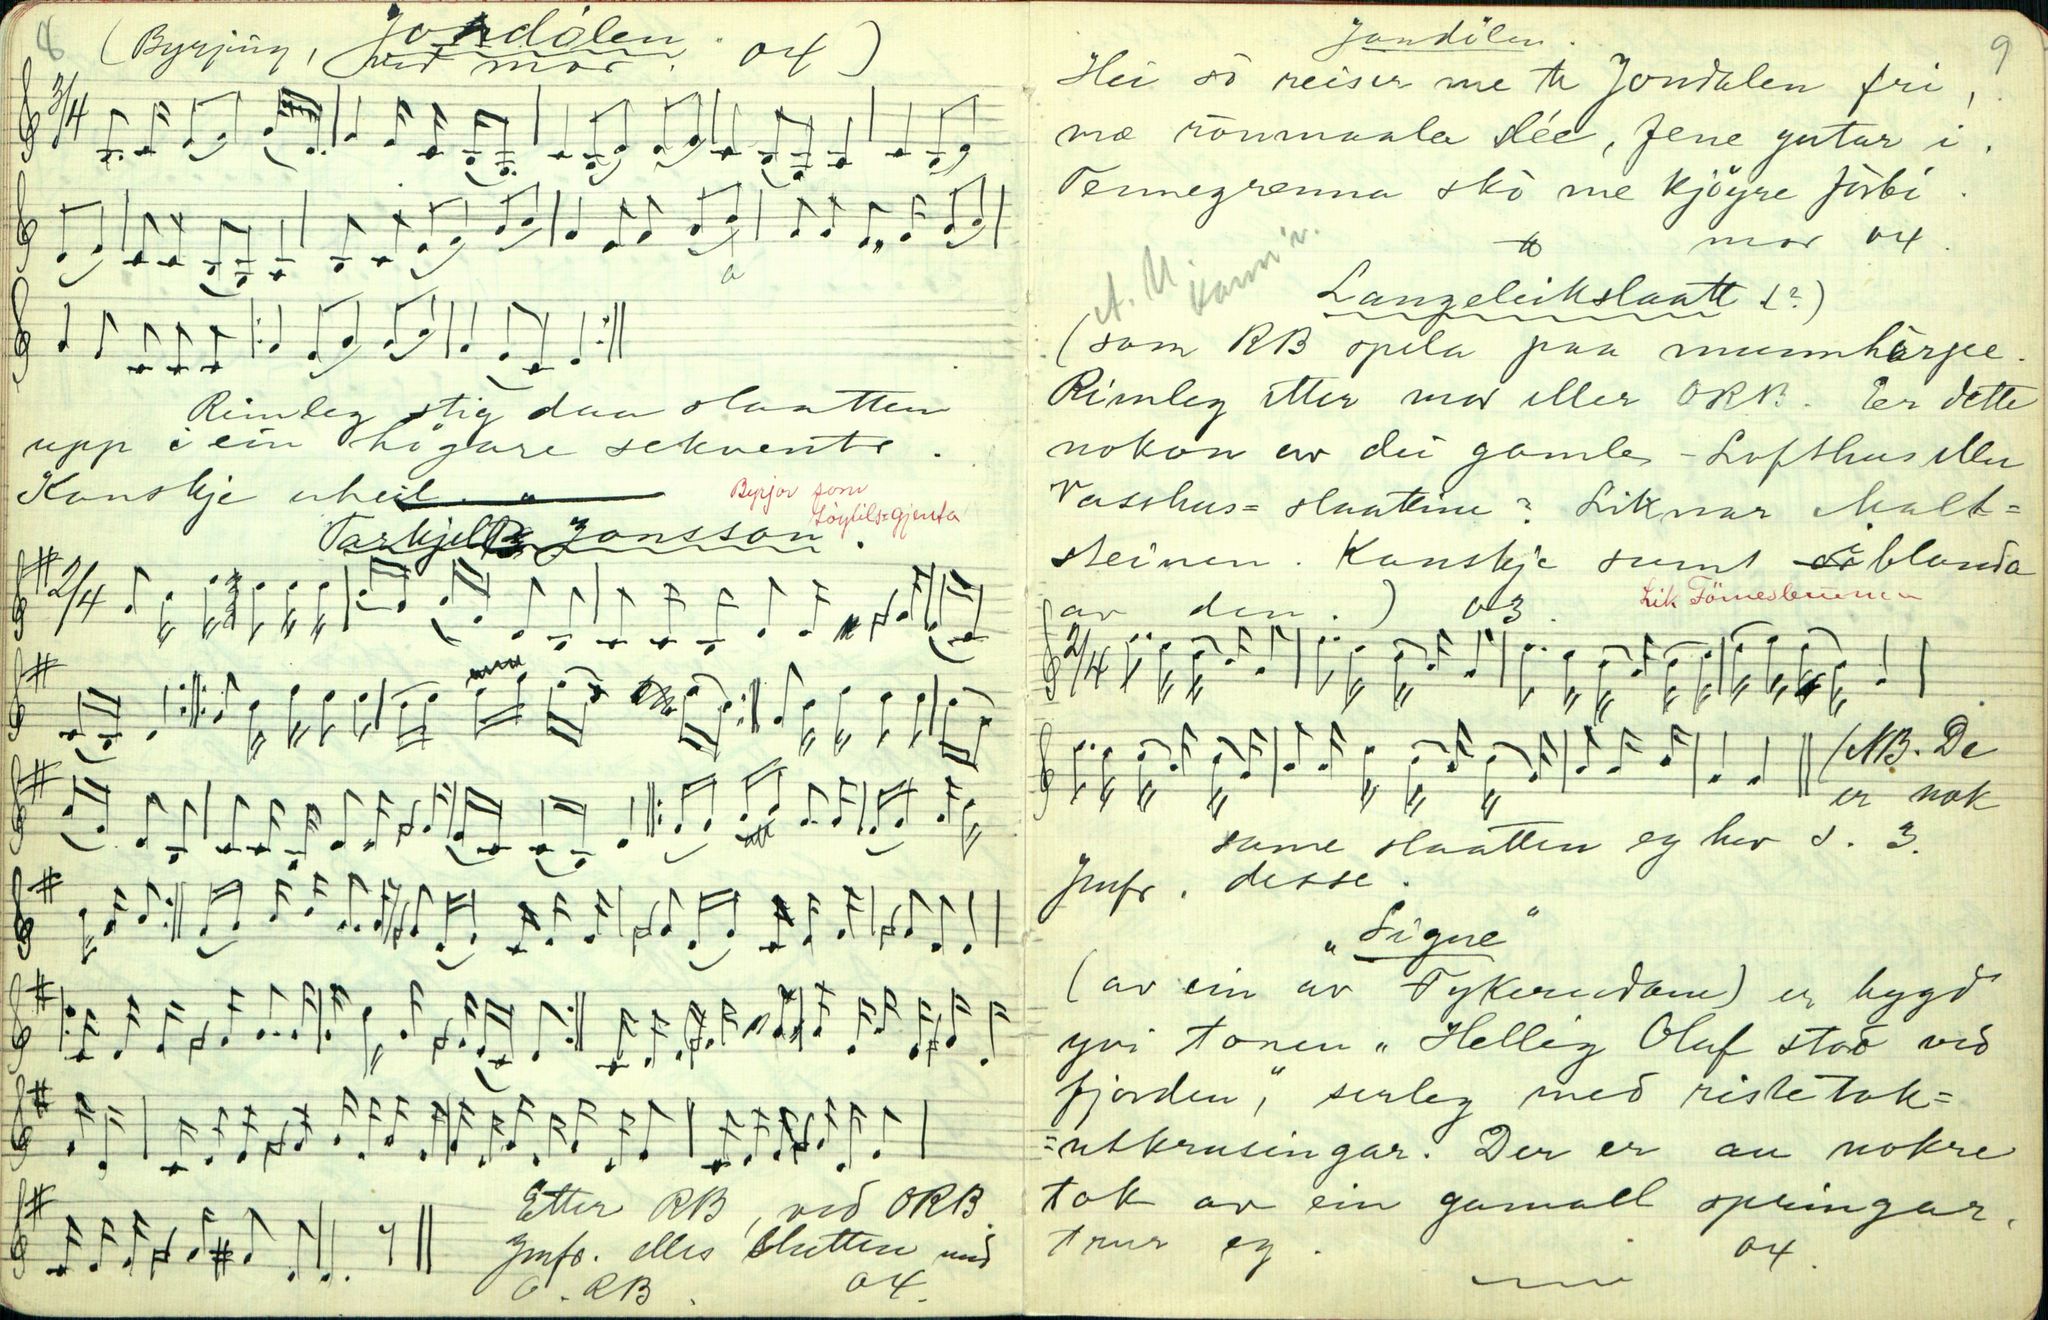 8
Jondølen.
(Byrjing, ved mor. 04)
3/4
a
Rimleg stig daa slaatten
upp i ein högare sekvents.
Kanskje uheil.
Byrjar som
Löytilsgjenta
Tarkjell Jonsson.
2/4
Etter RB, ved ORB.
Jmfr. elles slutten med
O. RB. 04.
9
Jondölen.
Hei so reiser me te Jondalen fri,
mæ rönmaala slée, fene gutar i,
Tennegrenna sko me kjöyre forbi.
mor 04.
Langeleikslaatt (?)
(som RB spela paa munnharpe.
Rimleg etter mor eller ORB. Er dette
nokon av dei gamle Lofthus eller
Vasshus= slaattine? Liknar Malt=
steinen. Kanskje sumt iblanda
av den.) 03.
2/4
(NB. De
er nok
same slaatten eg hev s. 3.
Jmfr. desse.
"Signe"
(av ein av Tykerudane) er bygd
yvi tonen "Hellig Oluf stod ved
fjorden", serleg med ristetak=
=utkrusingar. Der er au nokre
tak av ein gamall springar,
trur eg. 04.